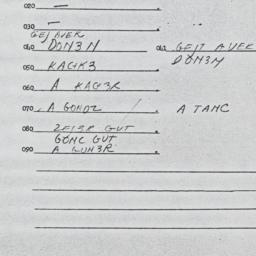 020 —
030 —
GEJ AVER
040 DON3N 041 GEJT AVEC
DON3N
050 KAGK3
060 A KAG3R
070 A GONDZ / A TANC
080 2FI3R GUT
GONC GUT
090 A GUN3R